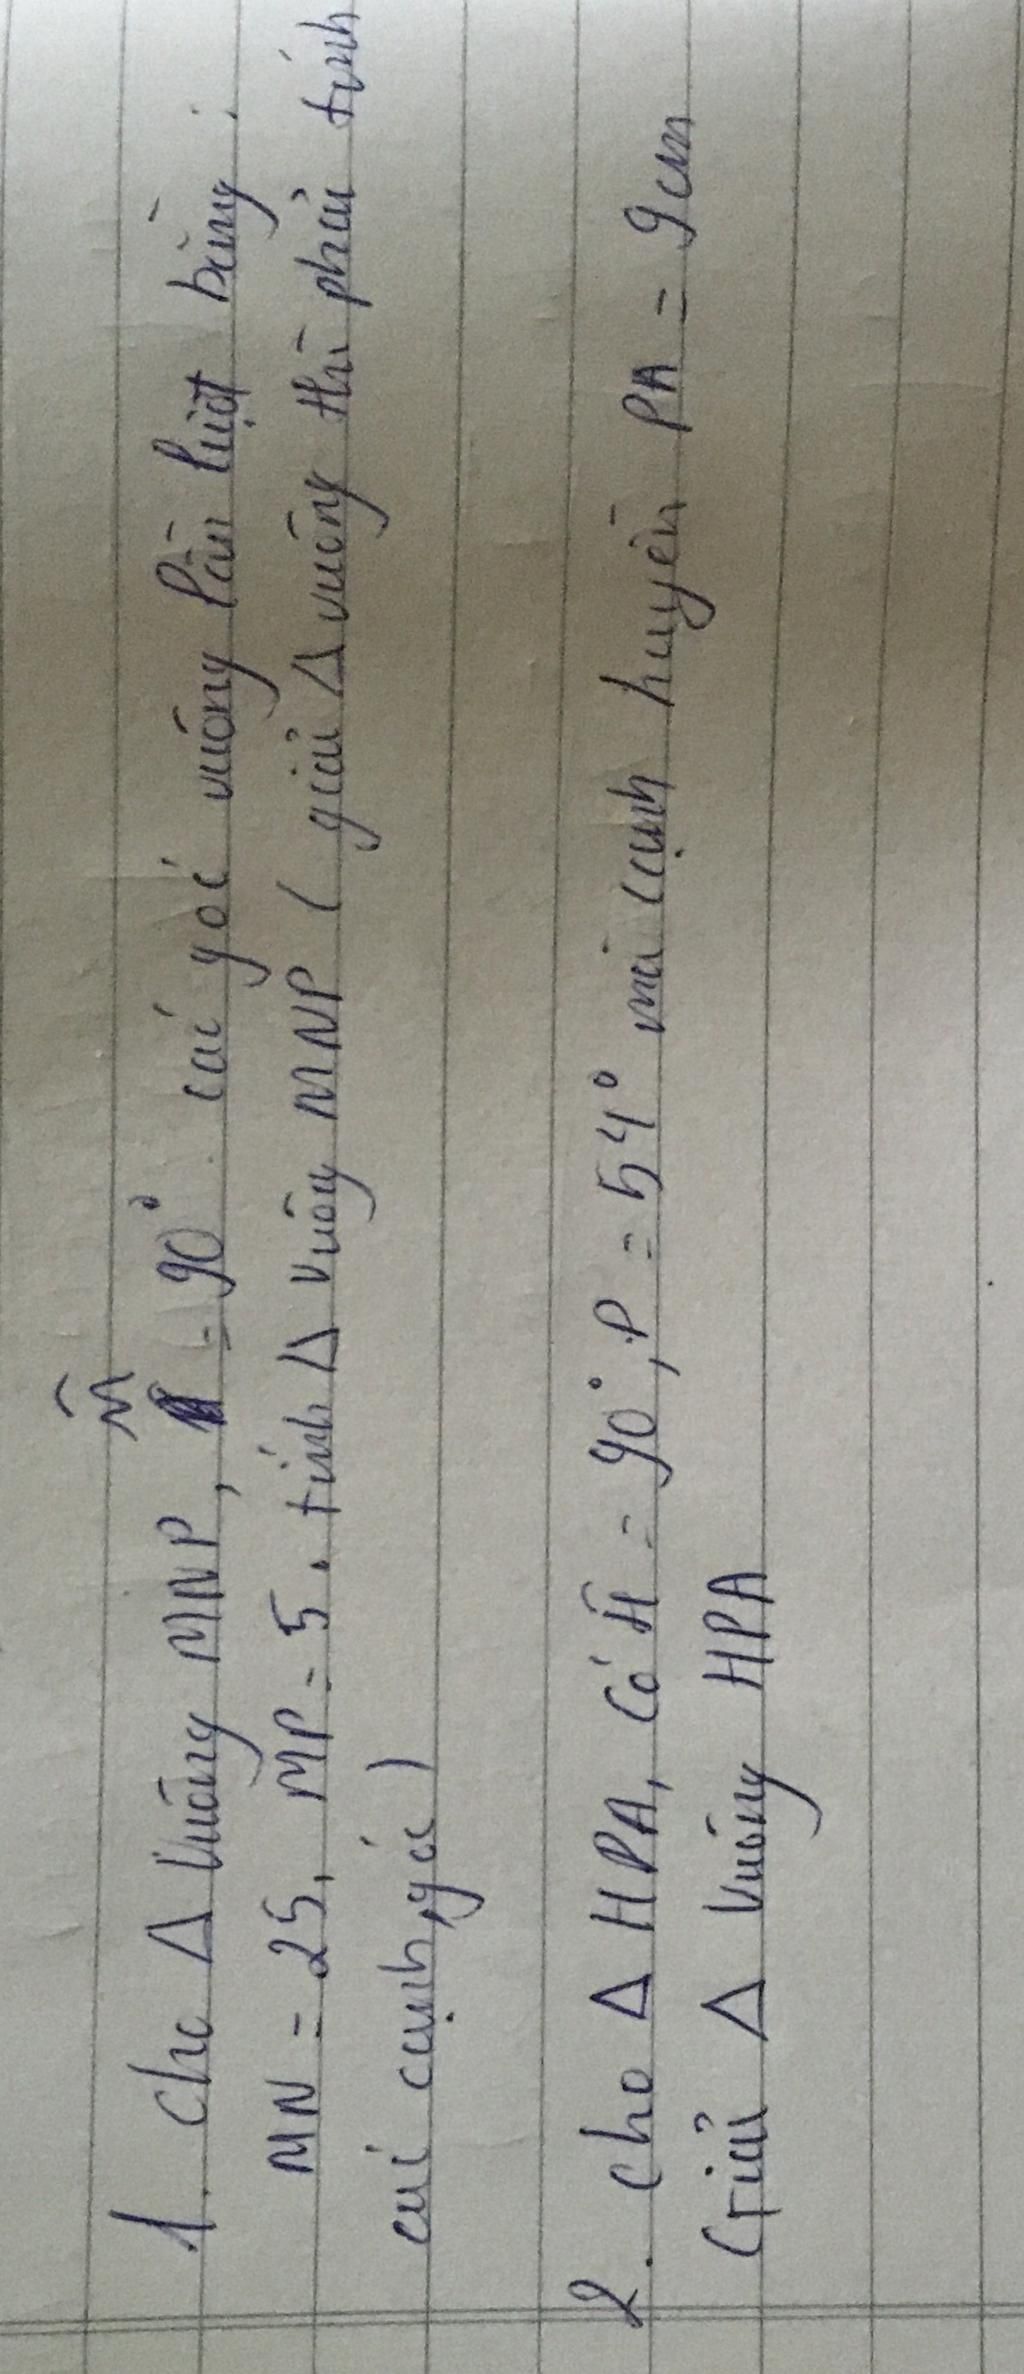 1. cho Δ vuông MNP, M̂ = 90°. các góc vuông lần lượt bằng:
MN = 25, MP = 5. tính Δ vuông MNP ( giải Δ vuông thì phải tính
các cạnh, góc )
2. cho Δ HPA, có Ĥ = 90°, P = 54° mà cạnh huyền PA = 9cm
Giải Δ vuông HPA